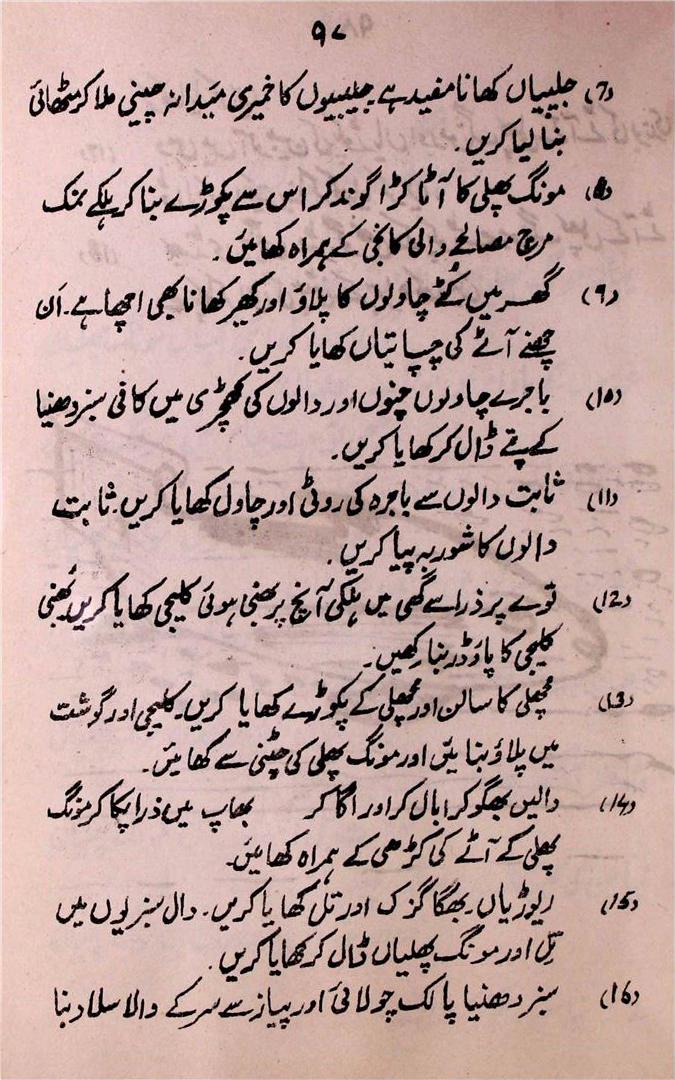 ۹۷
(7) جلیبیاں کھانا مفید ہے۔ جلیبیوں کا خمیری میدانہ چینی ملا کر مٹھائی
بنا لیا کریں۔
(8) مونگ پھلی کا آٹا کڑا گوند کر اس سے پکوڑے بنا کر ہلکے نمک
مرچ مصالحے والی کانجی کے ہمراہ کھائیں۔
(۹) گھر میں کُٹے چاولوں کا پلاؤ اور کھیر کھانا بھی اچھا ہے۔ اَن
چھنے آٹے کی چپاتیاں کھایا کریں۔
(10) باجرے چاولوں چنوں اور دالوں کی کھچڑی میں کافی سبز دھنیا
کے پتے ڈال کر کھایا کریں۔
(11) ثابت دالوں سے باجرہ کی روٹی اور چاول کھایا کریں۔ ثابت
دالوں کا شوربہ پیا کریں۔
(12) توے پر ذرا سے گھی میں ہلکی آنچ پر بھنی ہوئی کلیجی کھایا کریں بُھنی
کلیجی کا پاؤڈر بنا رکھیں۔
(13) مچھلی کا سالن اور مچھلی کے پکوڑے کھایا کریں۔ کلیجی اور گوشت
میں پلاؤ بنائیں اور مونگ پھلی کی چٹنی سے کھائیں۔
(14) دالیں بھگو کر ابال کر اور اگا کر بھاپ میں ذرا پکا کر مونگ
پھلی کے آٹے کی کڑھی کے ہمراہ کھائیں۔
(15) ریوڑیاں۔ بھگا گزک اور تل کھایا کریں۔ دال سبزیوں میں
تِل اور مونگ پھلیاں ڈال کر کھایا کریں۔
(16) سبز دھنیا پالک چولائی اور پیاز سے سرکے والا سلاد بنا